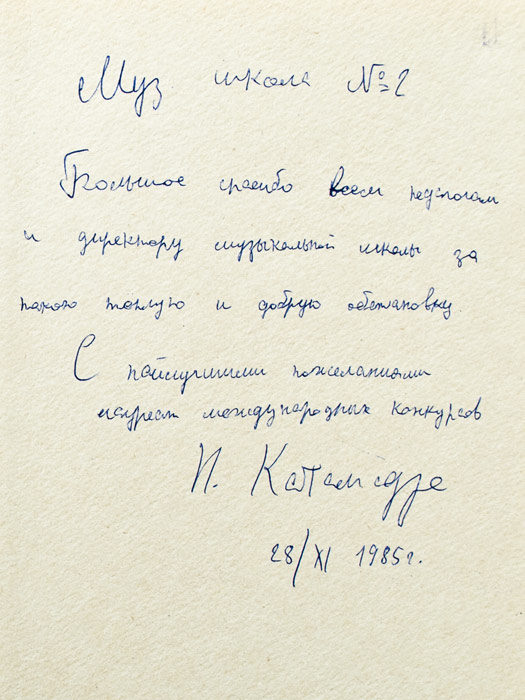 Муз школа № 2
Большое спасибо всем педагогам
и директору музыкальной школы за
такою теплую и добрую обстановку
С наилучшими пожеланиями
лауреат международных конкурсов
28/XI 1985г.